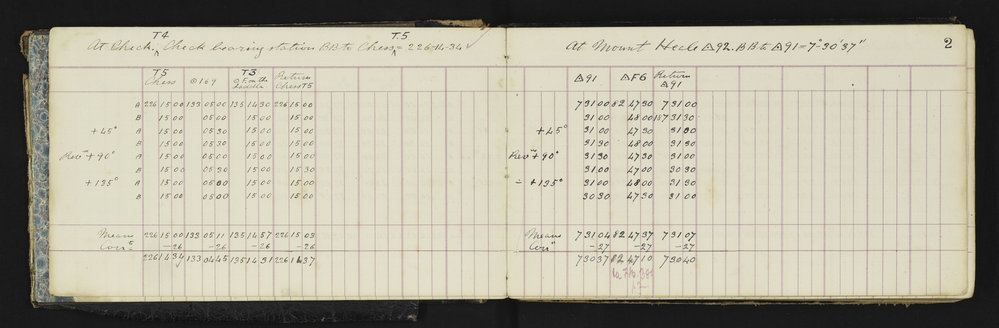 T4 T.5
At Check. Check bearing station BB to Chess = 226-14-34 ✓
T5 Chess ⊙169 T3 Return Chess T5
A 226 15 00 133 05 00 135 14 30 226 15 00
B 15 00 05 00 15 00 15 00
+45° A 15 00 05 30 15 00 15 00
B 15 00 05 30 15 00 15 00
+90° A 15 00 05 00 15 00 15 00
B 15 00 05 30 15 00 15 30
+135° A 15 00 05 00 15 00 15 00
B 15 00 05 00 15 00 15 00
Mean 226 15 00 133 05 11 135 14 57 226 15 03
Corrⁿ -26 -26 -26 -26
226 14 34 133 04 45 135 14 31 226 14 37
2
At Mount Hecla △92. BB to △91 = 7°30'37"
△91 △F6 Return △91
7 31 00 82 47 30 7 31 00
31 00 48 00 187 31 30
+45° 31 00 47 30 31 00
31 30 48 00 31 30
+90° 31 30 47 30 31 00
31 30 47 00 30 30
+135° 31 00 48 00 31 30
30 30 47 30 31 00
Mean 7 31 04 82 47 37 7 31 07
Corrⁿ -27 -27 -27
7 30 37 82 47 10 7 30 40